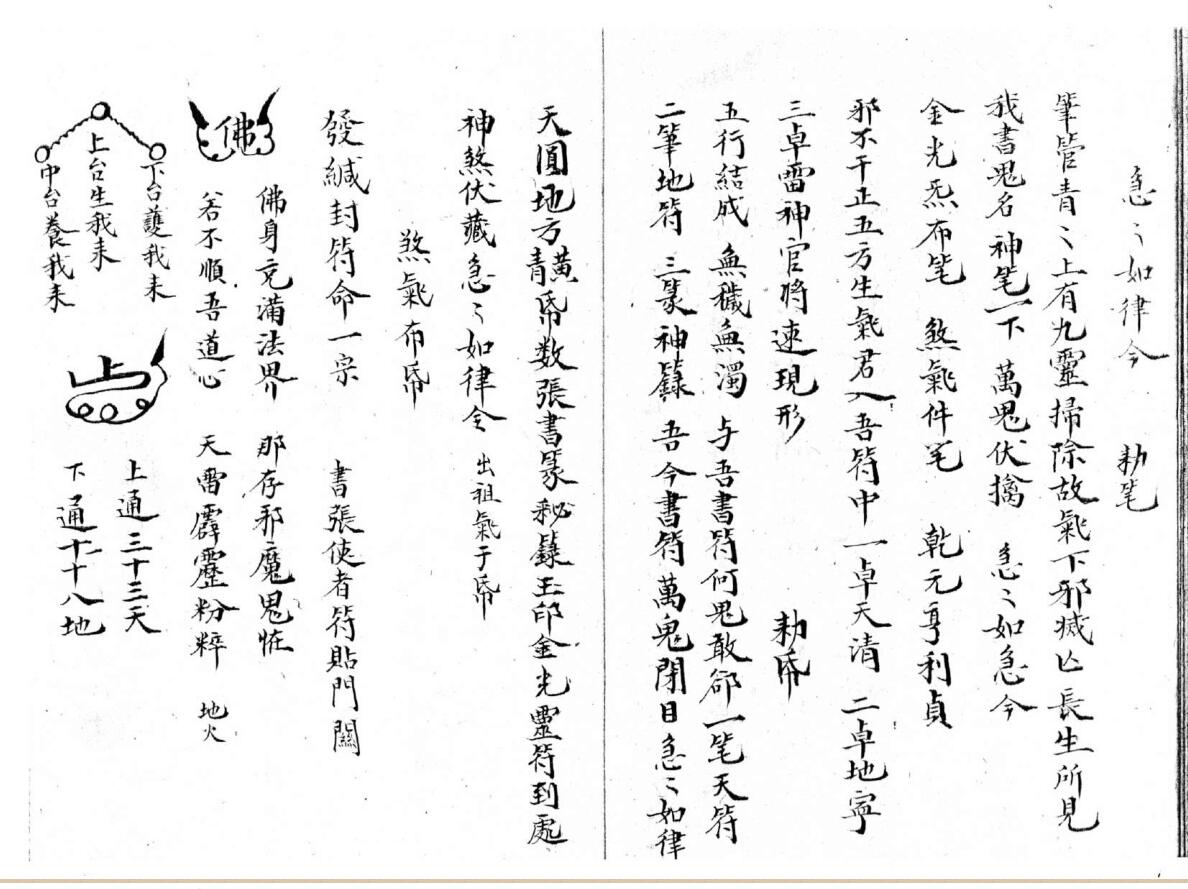 急〻如律令 勅笔
筆管青〻上有九靈掃除故氣下邪滅亡長生所見
我書鬼名 神笔一下 萬鬼伏擒 急〻如急令
金光炁布笔 煞氣件笔 乾元亨利貞
邪不干正五方生氣君入吾符中一卓天清 二卓地寧
三卓雷神官将速現形 勅帋
五行結成 無穢無濁 与吾書符何鬼敢郤一笔天符
二筆地符 三篆神籙 吾今書符萬鬼閉目急〻如律
天圓地方黄青帋数張書篆秘籙玉印金光靈符到處
神煞伏藏急〻如律令 出祖氣于帋
煞氣布帋
發緘封符命一宗 書張使者符貼門闗
佛身充滿法界 那存邪魔鬼恠
佛
若不順吾道心 天雷霹靂粉粹 地火
下台護我来
上台生我来
中台養我来
上
上通三十三天
下通十十八地